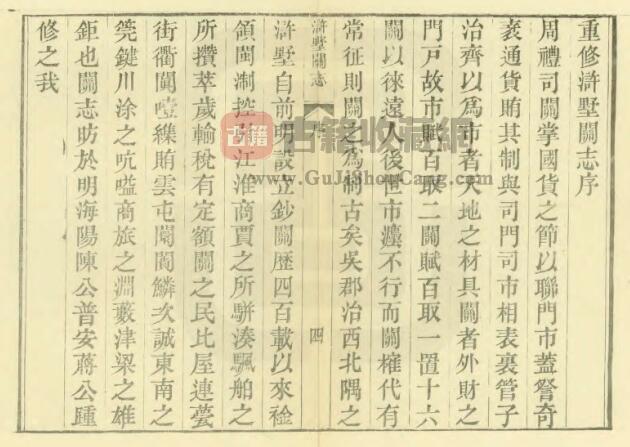 重修滸墅關志序
周禮司關掌國貨之節以聯門市蓋詧奇
袤通貨賄其制與司門司市相表裏管子
治齊以為市者天地之材具關者外財之
門戸故市賦百取二關賦百取一置十六
關以徠遠人後世市廛不行而關榷代有
常征則關之為制古矣吳郡治西北隅之
滸墅關志
序
四
滸墅自前明設立鈔關歷四百載以來襟
領閩淛控引江淮商賈之所駢湊颿舶之
所攢萃歲輸稅有定額關之民比屋連甍
街衢闐噎纝賄雲屯闤闠鱗次誠東南之
筦鍵川涂之吭嗌商旅之淵藪津梁之雄
鉅也關志昉於明海陽陳公普安蔣公踵
修之我
古籍
古籍收藏網
www.GuJiShouCang.com